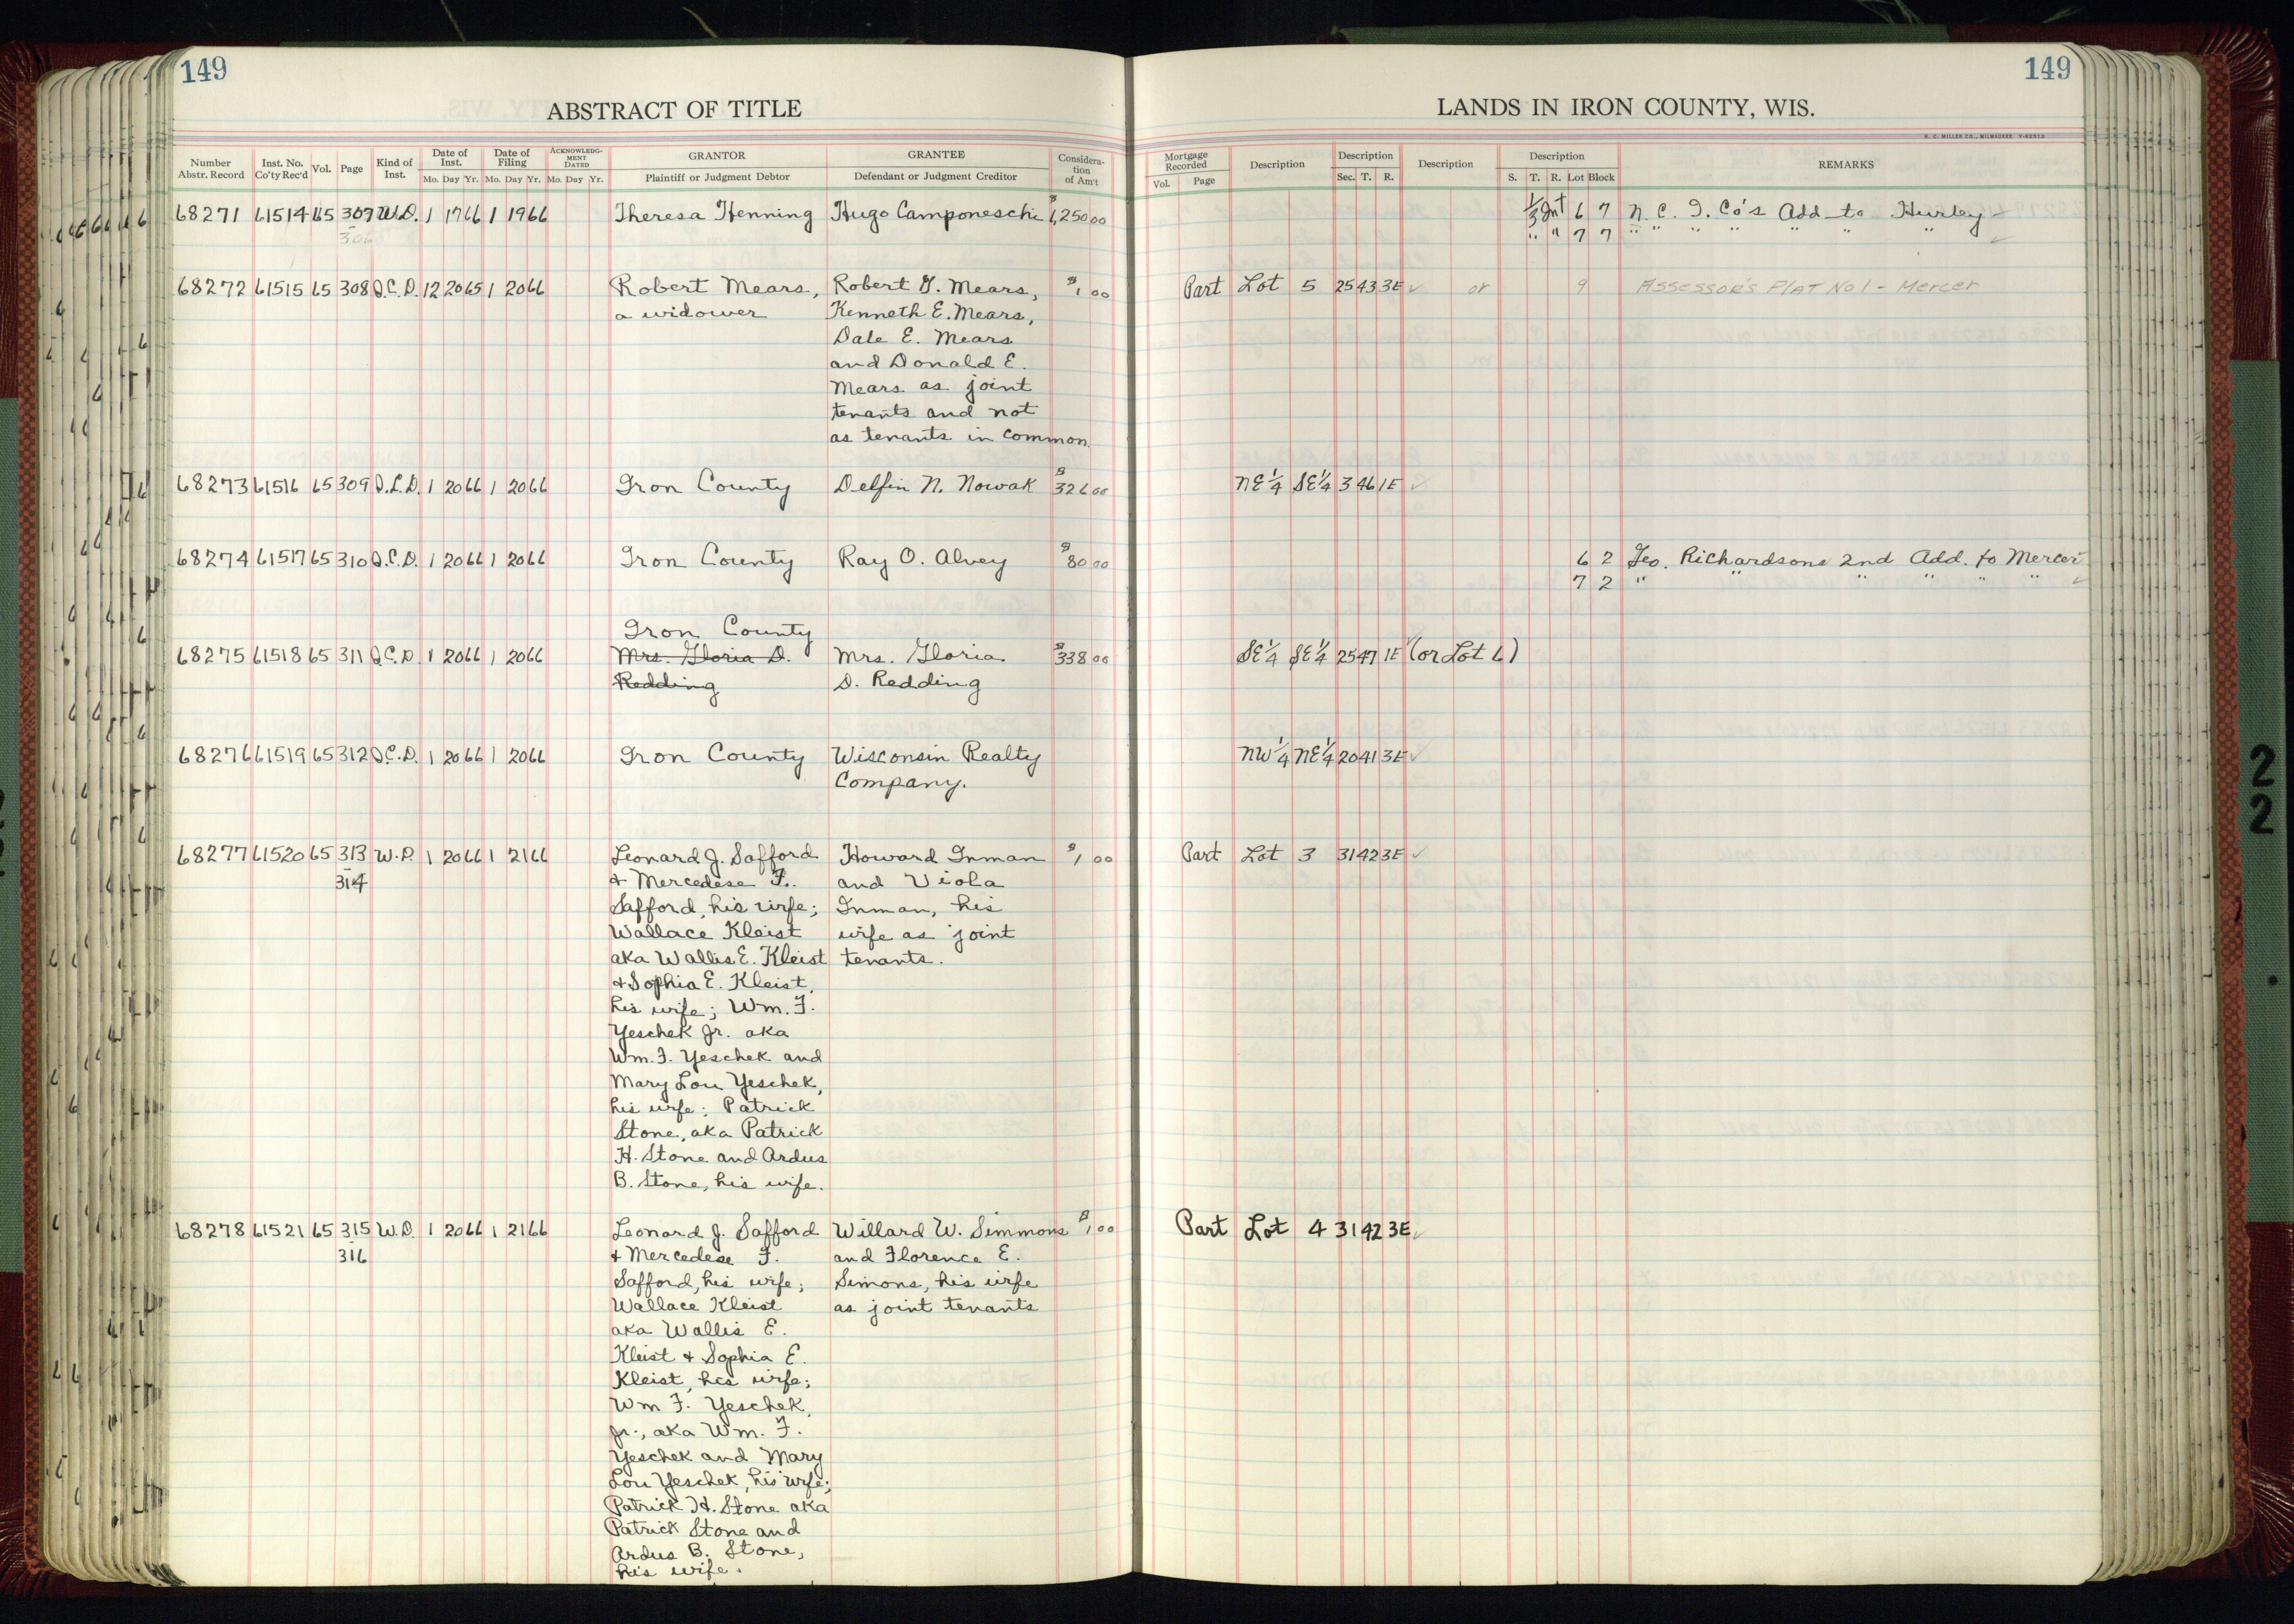 149
149
ABSTRACT OF TITLE
LANDS IN IRON COUNTY, WIS.
H. C. MILLER CO., MILWAUKEE
Number Abstr. Record Inst. No. Co'ty Rec'd Vol. Page Kind of Inst. Date of Inst. Mo. Day Yr. Date of Filing Mo. Day Yr. ACKNOWLEDGMENT DATED Mo. Day Yr. GRANTOR Plaintiff or Judgment Debtor GRANTEE Defendant or Judgment Creditor Consideration of Am't
Mortgage Recorded Vol. Page Description Description Sec. T. R. Description Description S. T. R. Lot Block REMARKS
68271 61514 65 307 W.D. 1 17 66 1 19 66 Theresa Henning Hugo Camponeschi $1,250 00 1/3 Int 6 7 N. C. I. Co's Add to Hurley
306 " " 7 7 " " " " " " "
68272 61515 65 308 Q.C.D. 12 20 65 1 20 66 Robert Mears, Robert G. Mears, $1 00 Part Lot 5 25 43 3E or 9 Assessor's Plat No 1 - Mercer
a widower Kenneth E. Mears,
Dale E. Mears
and Donald E.
Mears as joint
tenants and not
as tenants in common.
68273 61516 65 309 Q.C.D. 1 20 66 1 20 66 Iron County Delfin N. Nowak $326 00 NE 1/4 SE 1/4 3 46 1E
68274 61517 65 310 Q.C.D. 1 20 66 1 20 66 Iron County Ray O. Alvey $80 00 6 2 Geo. Richardsons 2nd Add. to Mercer
7 2 " " " " " "
Iron County
68275 61518 65 311 Q.C.D 1 20 66 1 20 66 Mrs. Gloria D. Mrs. Gloria $338 00 SE 1/4 SE 1/4 25 47 1E (or Lot 6)
Redding D. Redding
68276 61519 65 312 Q.C.D. 1 20 66 1 20 66 Iron County Wisconsin Realty NW 1/4 NE 1/4 20 41 3E
Company.
68277 61520 65 313 W.D. 1 20 66 1 21 66 Leonard J. Safford Howard Inman $1 00 Part Lot 3 31 42 3E
314 & Mercedese F. and Viola
Safford, his wife; Inman, his
Wallace Kleist wife as joint
aka Wallis E. Kleist tenants.
& Sophia E. Kleist,
his wife; Wm. F.
Yeschek Jr. aka
Wm. F. Yeschek and
Mary Lou Yeschek,
his wife; Patrick
Stone, aka Patrick
H. Stone and Ardus
B. Stone, his wife.
68278 61521 65 315 W.D. 1 20 66 1 21 66 Leonard J. Safford Willard W. Simmons $1 00 Part Lot 4 31 42 3E
316 & Mercedese F. and Florence E.
Safford, his wife; Simons, his wife
Wallace Kleist as joint tenants
aka Wallis E.
Kleist & Sophia E.
Kleist, his wife;
Wm F. Yeschek,
Jr., aka Wm. F.
Yeschek and Mary
Lou Yeschek, his wife;
Patrick H. Stone aka
Patrick Stone and
Ardus B. Stone,
his wife.
2
2